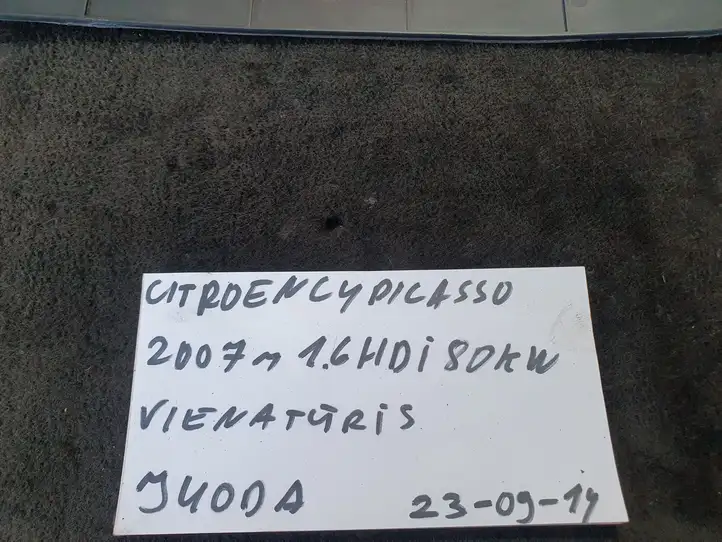 CITROEN C4 PICASSO
2007 m 1.6 HDi 80KW
VIENATŪRIS
JUODA 23-09-14